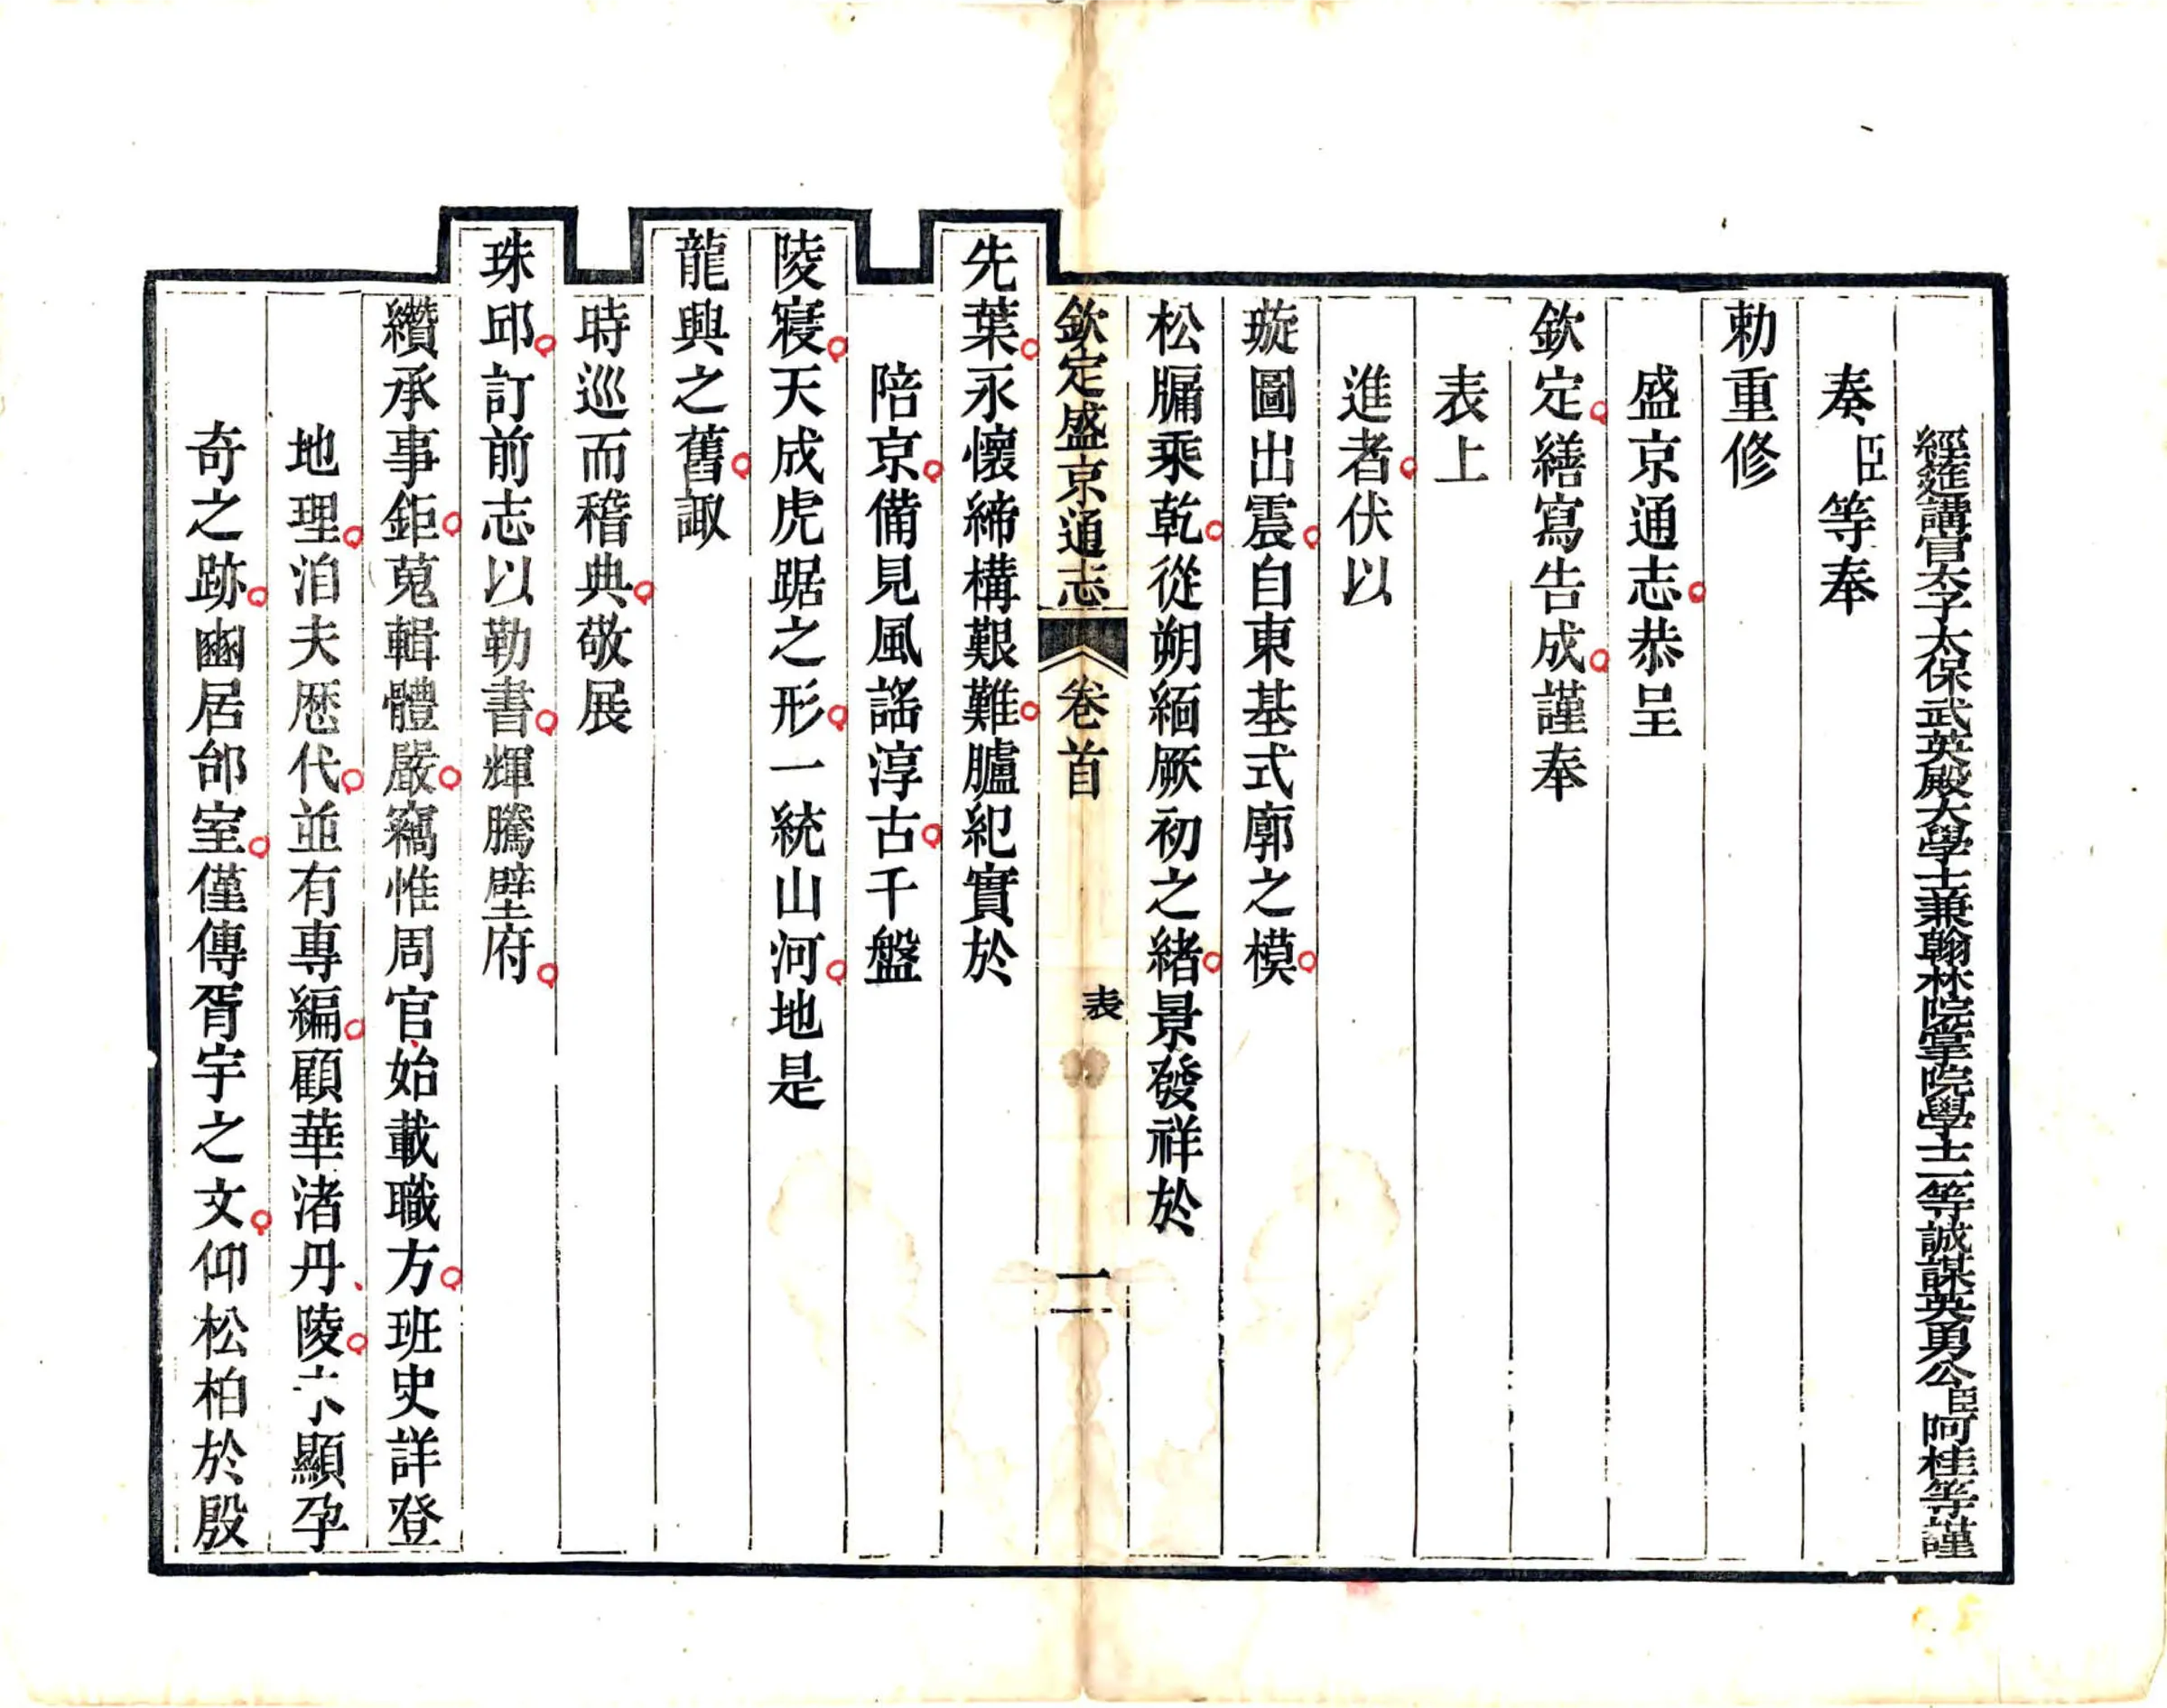 經筵講官太子太保武英殿大學士兼翰林院掌院學士一等誠謀英勇公臣阿桂等謹
奏臣等奉
勅重修
盛京通志恭呈
欽定繕寫告成謹奉
表上
進者伏以
璇圖出震自東基式廓之模
松牖乘乾從朔緬厥初之緒景發祥於
欽定盛京通志 卷首 表 二
先葉永懷締構艱難臚紀實於
陪京備見風謡淳古千盤
陵寢天成虎踞之形一統山河地是
龍興之舊諏
時巡而稽典敬展
珠邱訂前志以勒書輝騰壁府
纘承事鉅蒐輯體嚴竊惟周官始載職方班史詳登
地理洎夫歷代並有專編顧華渚丹陵顯孕
奇之跡豳居邰室僅傳胥宇之文仰松柏於殷